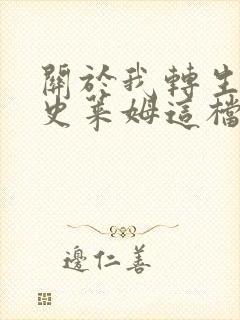 關於我轉生
史萊姆這檔
邊仁善